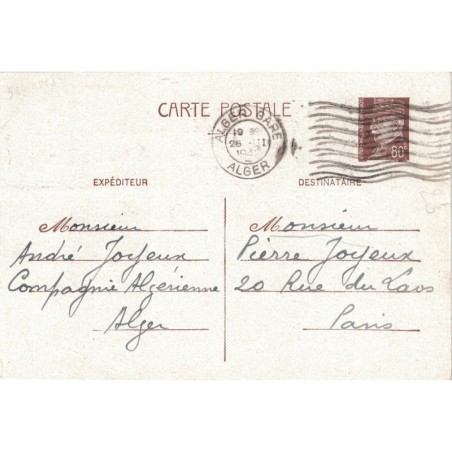 CARTE POSTALE
ALGER GARE
19
26
ALGER
60c
EXPÉDITEUR
DESTINATAIRE
Monsieur
André Joyeux
Compagnie Algérienne
Alger
Monsieur
Pierre Joyeux
20 Rue du Laos
Paris